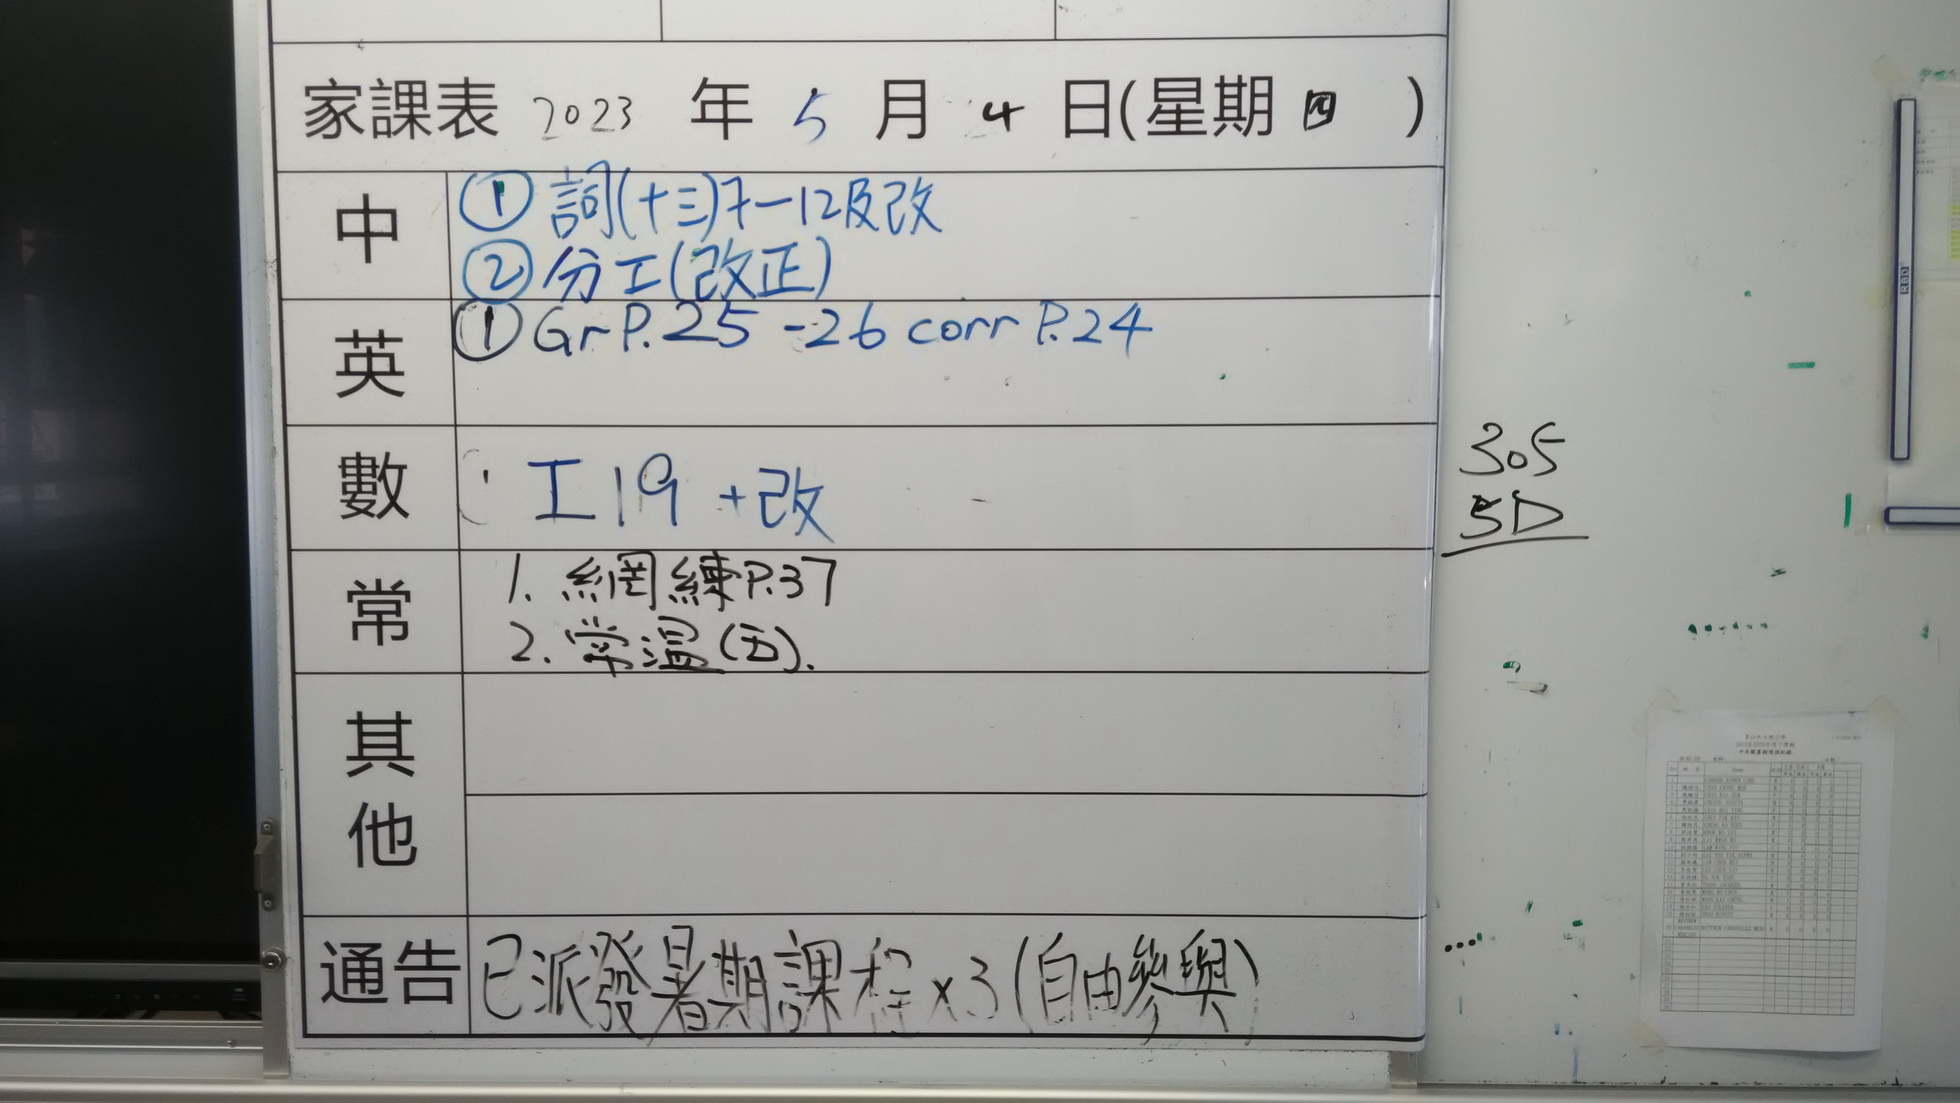 家課表 2023 年 5 月 4 日(星期 四 )
中
① 詞(十三)7-12及改
② 分工(改正)
英
① Gr P.25 -26 corr P.24
數
工19 + 改
常
1. 網練P.37
2. 常溫(五).
其他
通告
已派發暑期課程x3(自由參與)
305
5D